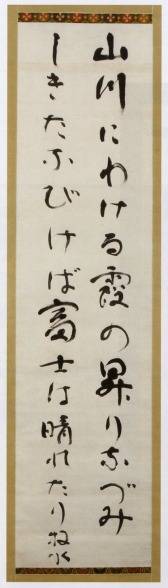 山川にわける霞の昇りなづみ
しきたなびけば富士は晴れたり 牧水